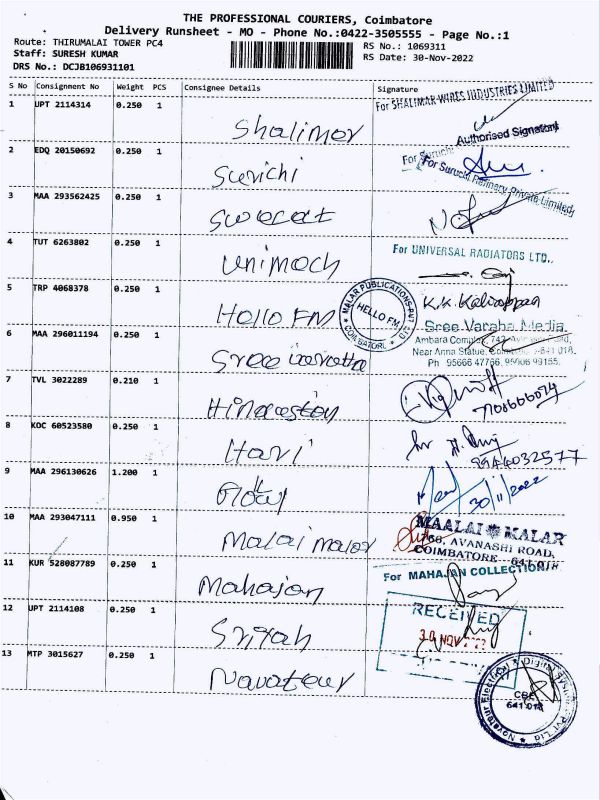 THE PROFESSIONAL COURIERS, Coimbatore
Delivery Runsheet - MO - Phone No.:0422-3505555 - Page No.:1
Route: THIRUMALAI TOWER PC4
RS No.: 1069311
Staff: SURESH KUMAR
RS Date: 30-Nov-2022
DRS No.: DCJB106931101
S No Consignment No Weight PCS Consignee Details Signature
1 UPT 2114314 0.250 1 Shalimar
For SHALIMAR WIRES INDUSTRIES LIMITED
Authorised Signatory
2 EDQ 20150692 0.250 1 Surichi
For Suruchi
For Suruchi Refinery Private Limited,
3 MAA 293562425 0.250 1
4 TUT 6263802 0.250 1 Unimech
For UNIVERSAL RADIATORS LTD.,
5 TRP 4068378 0.250 1 Hello FM
MALAR PUBLICATIONS PVT LTD
HELLO FM
COIMBATORE
6 MAA 296011194 0.250 1 Sree
Sree Varaha Media
Ambara Complex, 742,
Near Anna Statue, 641 018.
Ph 95666 47766,
7 TVL 3022289 0.210 1
8 KOC 60523580 0.250 1 Hari
9944032577
9 MAA 296130626 1.200 1
30/11/2022
10 MAA 293047111 0.950 1 Malai malar
MAALAI MALAR
AVANASHI ROAD,
COIMBATORE - 641 018
11 KUR 528087789 0.250 1 Mahajan
For MAHAJAN COLLECTION
12 UPT 2114108 0.250 1
RECEIVED
30 NOV
13 MTP 3015627 0.250 1 Navateur
Novateur Electrical & Digital Systems Pvt Ltd
CBE
641 018